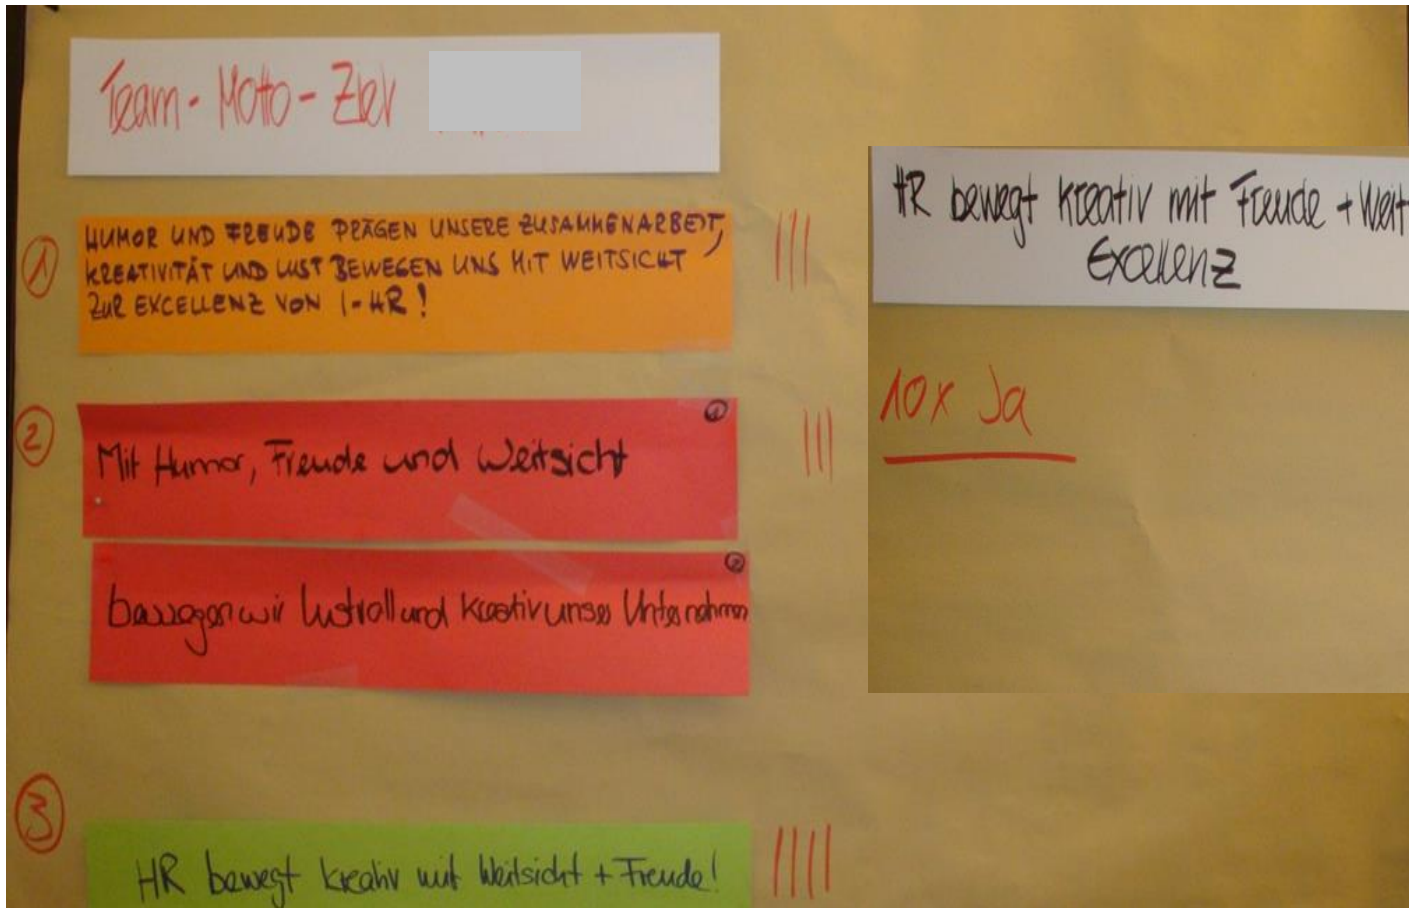 Team-Motto-Ziel
①
HUMOR UND FREUDE PRÄGEN UNSERE ZUSAMMENARBEIT,
KREATIVITÄT UND LUST BEWEGEN UNS MIT WEITSICHT
ZUR EXCELLENZ VON I-HR!
|||
②
①
Mit Humor, Freude und Weitsicht
|||
②
bewegen wir lustvoll und kreativ unser Unternehmen
③
HR bewegt kreativ mit Weitsicht + Freude!
||||
HR bewegt kreativ mit Freude + Weit
Excellenz
10x Ja